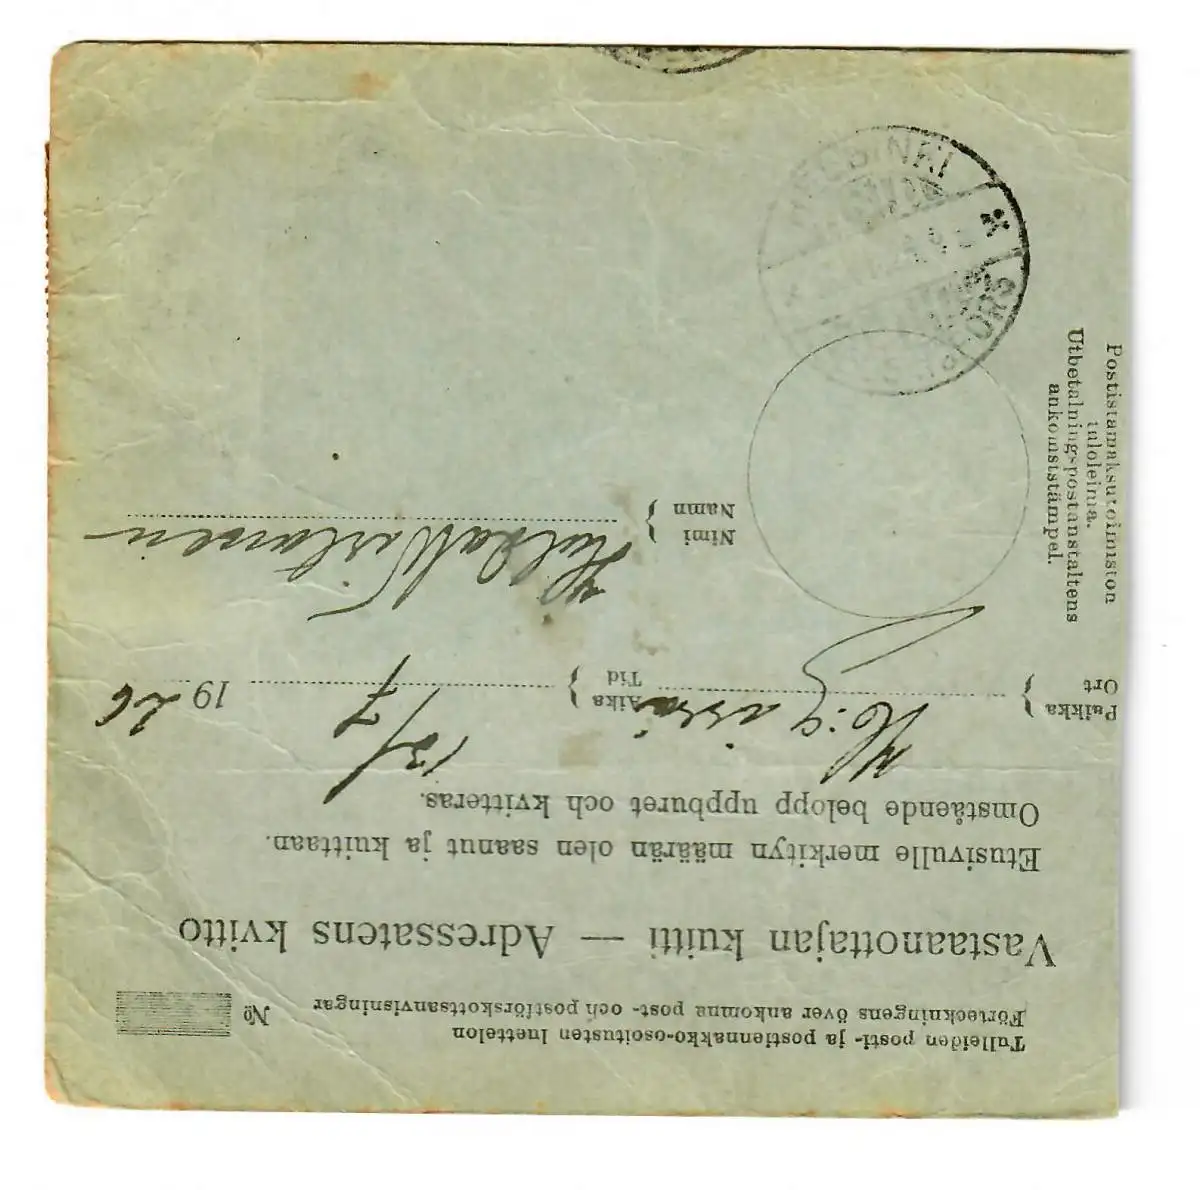 Tulleiden posti- ja postiennakko-osoitusten luettelon
Förteckningens över ankomna post- och postförskottsanvisningar
№
Vastaanottajan kuitti — Adressatens kvitto
Etusivulle merkityn määrän olen saanut ja kuittaan.
Omstående belopp uppburet och kvitteras.
Paikka
Ort
H:gissä
Aika
Tid
13/7
1926
Nimi
Namn
Hilda
Postistamaksutoimiston
tuloleima.
Utbetalningspostanstaltens
ankomststämpel.
HELSINKI
HELSINGFORS